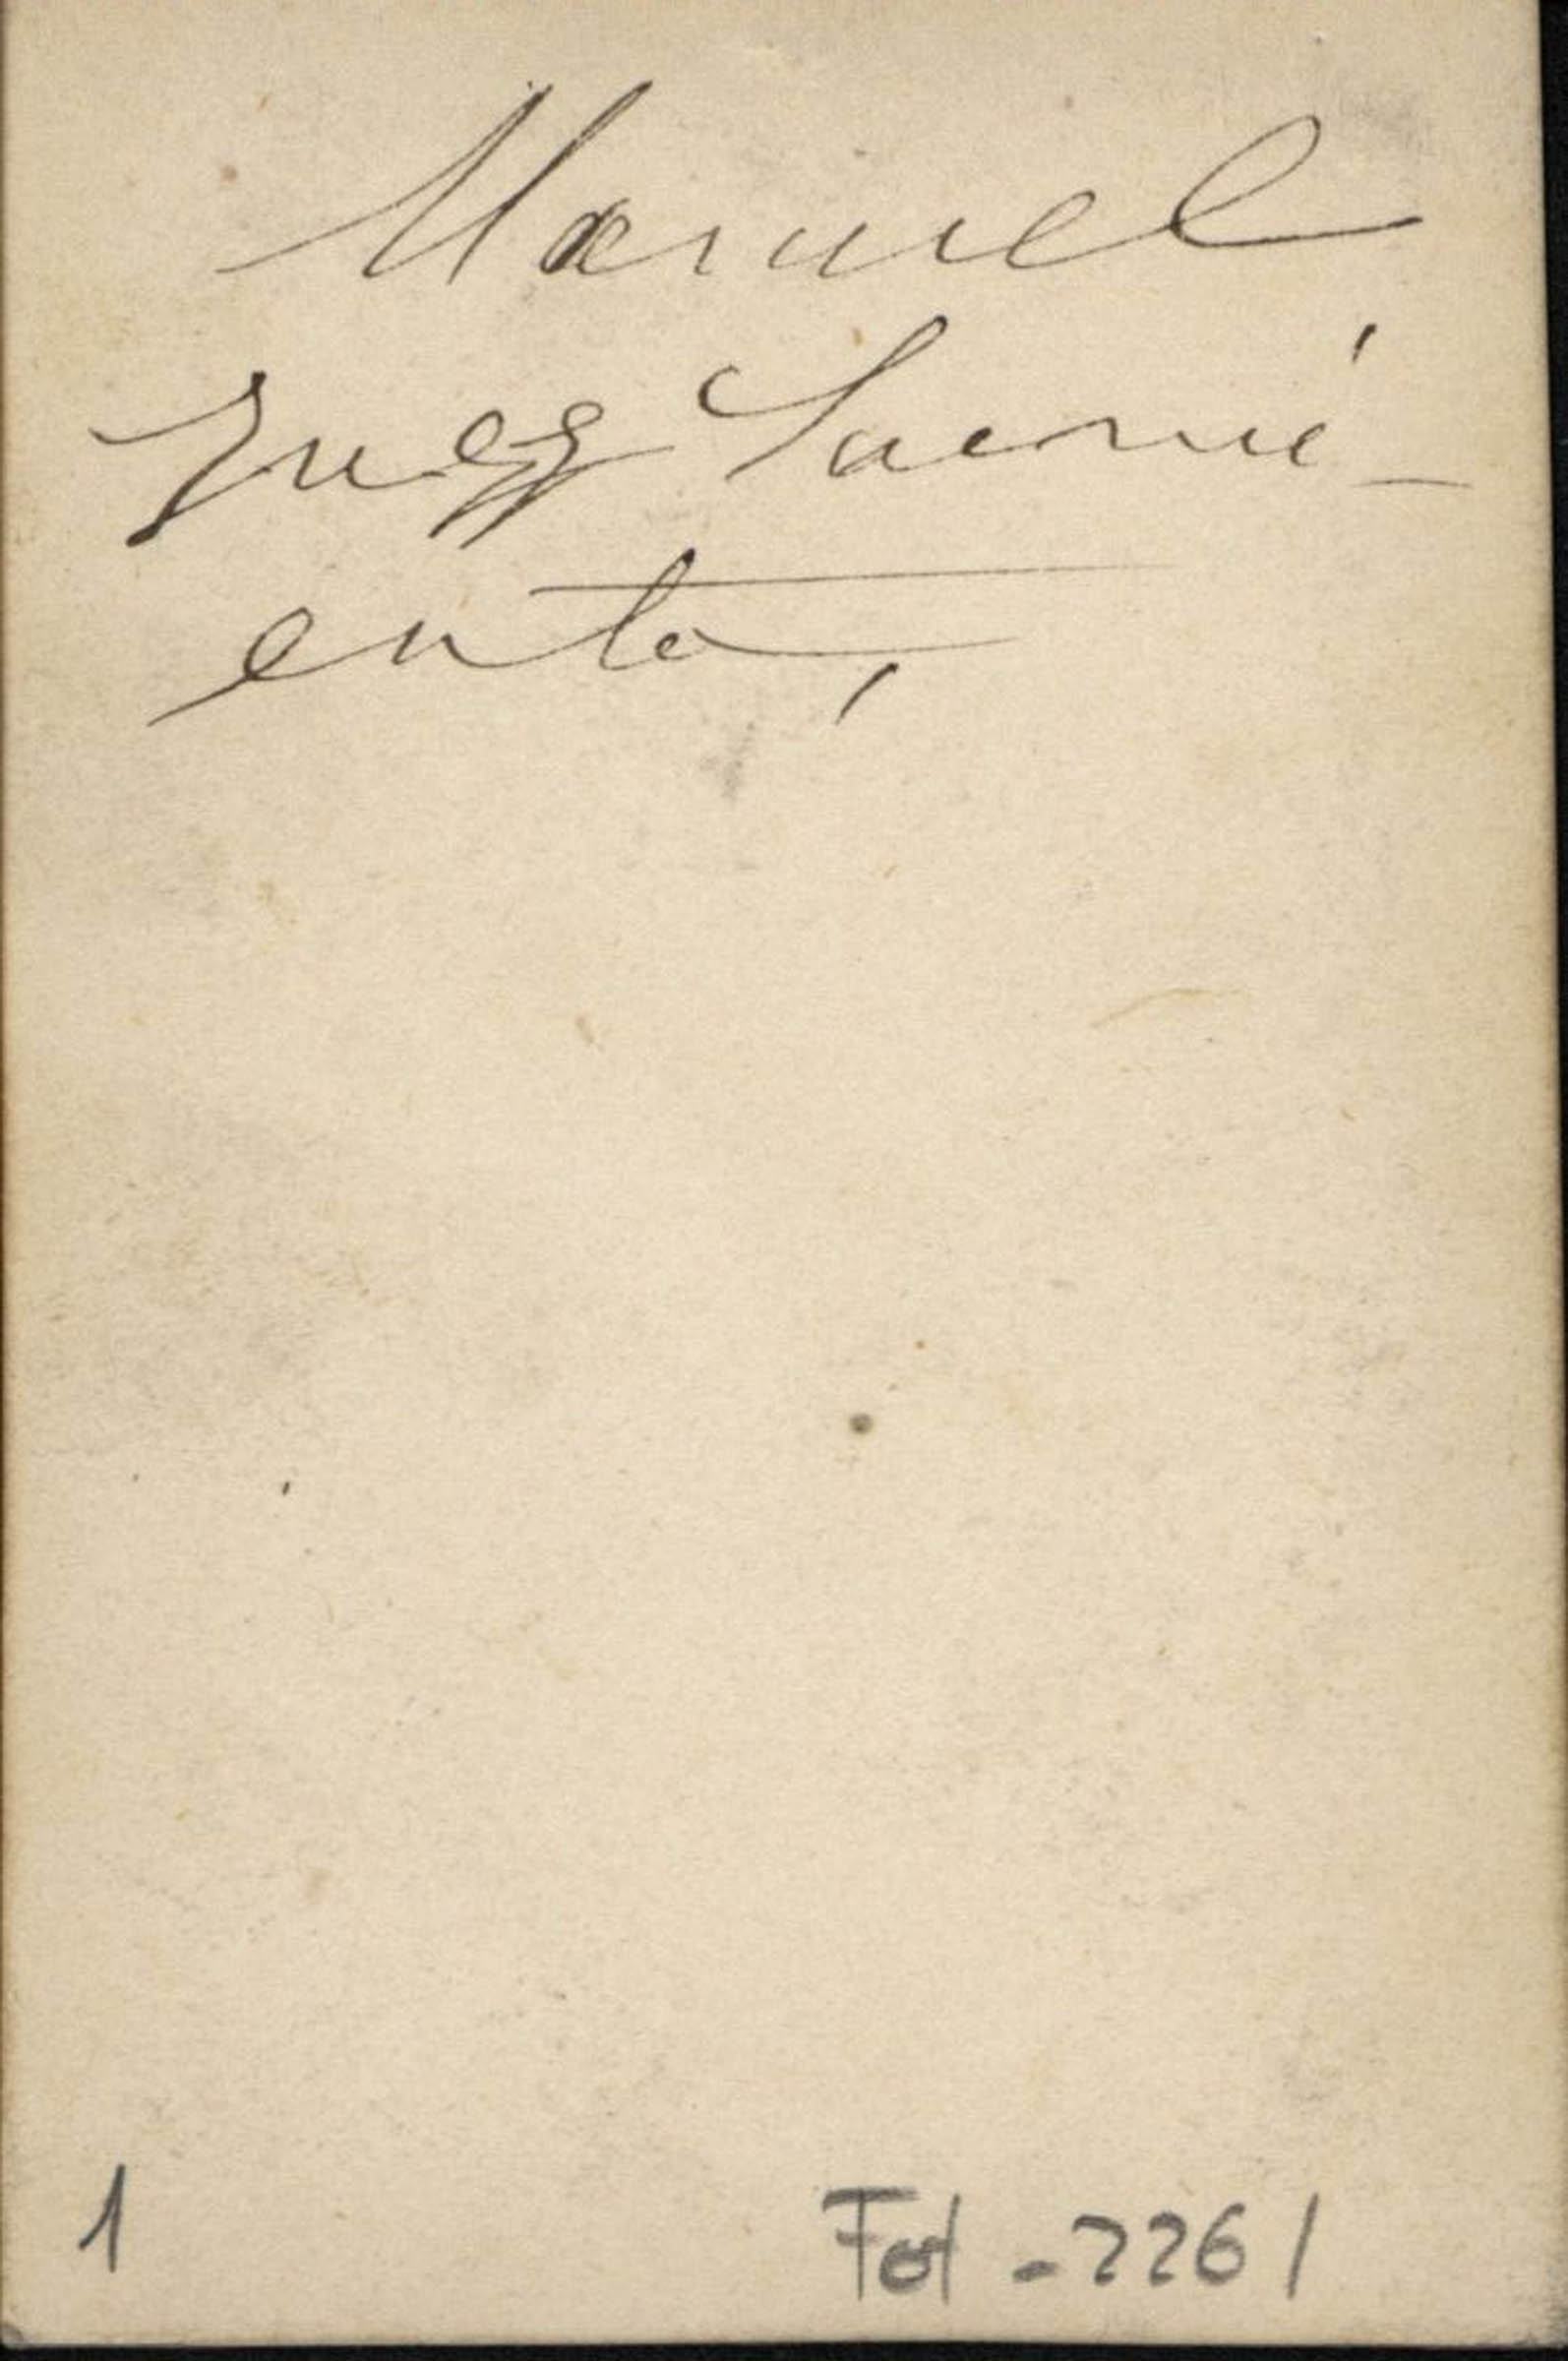 Manuel
Sarmi-
ento,
1 Fot - 2261